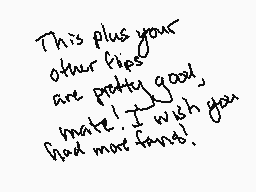 This plus your
other flips
are pretty good,
mate! I wish you
had more fans!